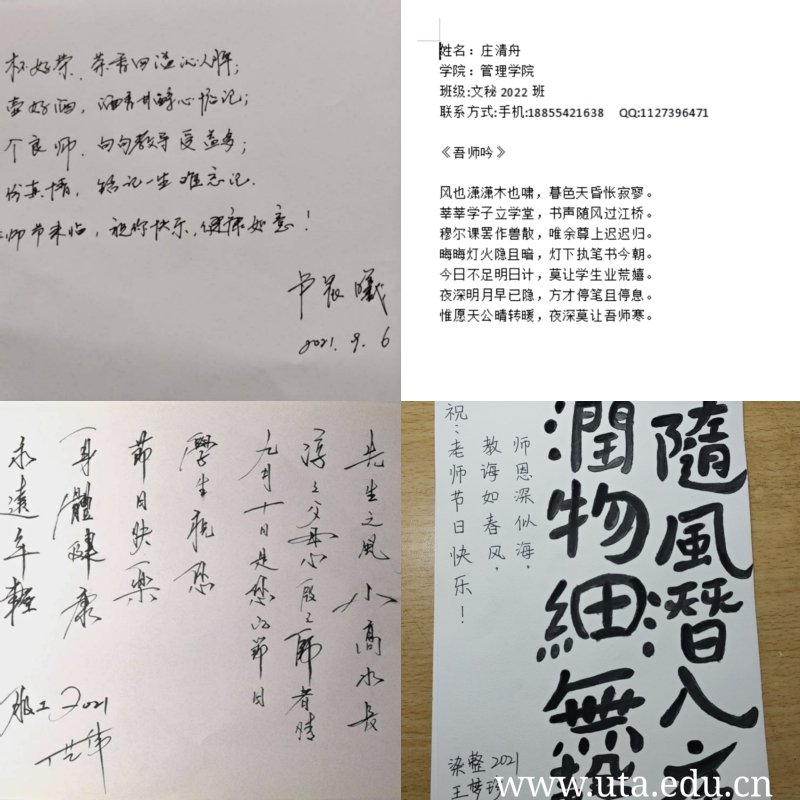 杯好茶、茶香四溢沁人脾；
壶好酒，酒香甘醇心惦记；
个良师，句句教导受益多；
份真情，铭记一生难忘记.
师节来临，祝你快乐,健康如意！
卢晨曦
2021.9.6
姓名：庄清舟
学院：管理学院
班级:文秘2022班
联系方式:手机:18855421638 QQ:1127396471
《吾师吟》
风也潇潇木也啸，暮色天昏怅寂寥。
莘莘学子立学堂，书声随风过江桥。
穆尔课罢作兽散，唯余尊上迟迟归。
晦晦灯火隐且暗，灯下执笔书今朝。
今日不足明日计，莫让学生业荒嬉。
夜深明月早已隐，方才停笔且停息。
惟愿天公晴转暖，夜深莫让吾师寒。
先生之风山高水长
淳之父母心殷之师者情
九月十日是您的节日
學生祝您
節日快樂
身體健康
永遠年輕
2021
隨風潛入
潤物細無
师恩深似海，
教诲如春风，
祝：老师节日快乐！
染整2021
王梦
www.uta.edu.cn